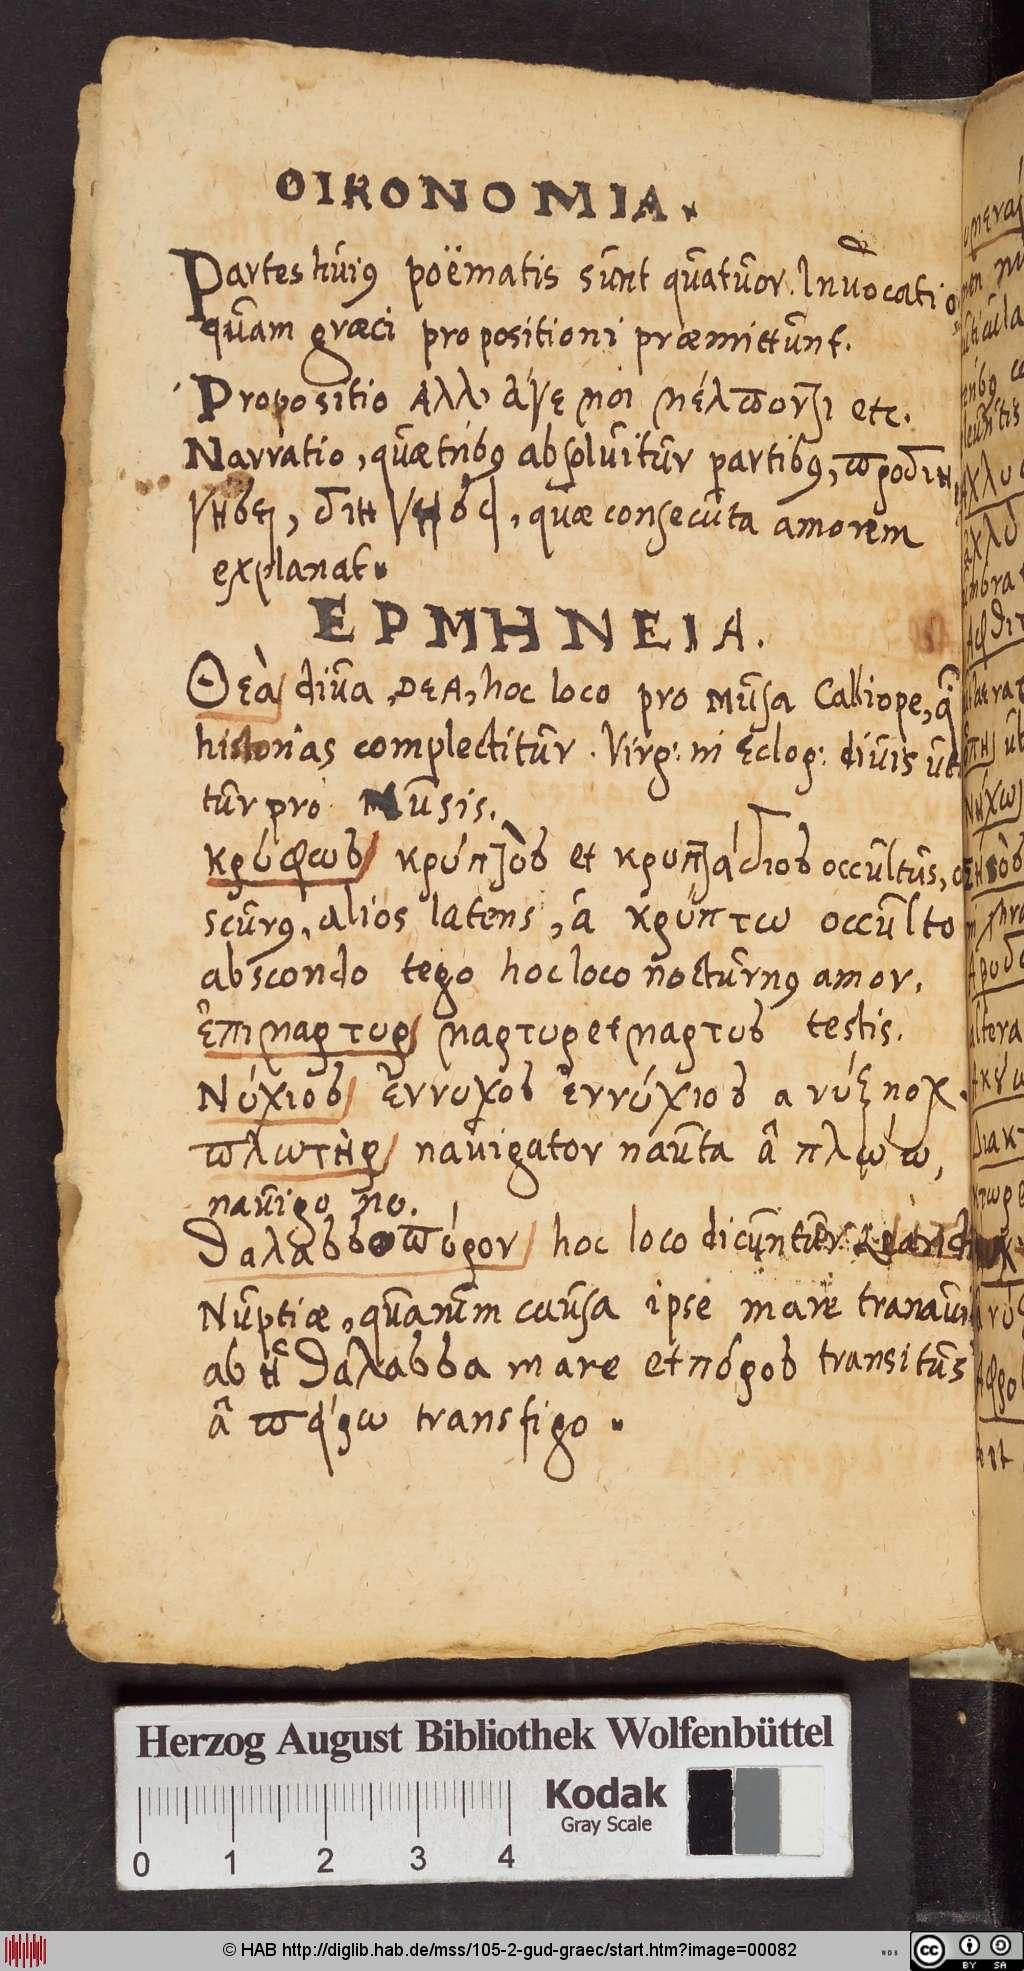 ΟΙΚΟΝΟΜΙΑ.
Partes huius poëmatis sunt quatuor. Invocatio
quam græci propositioni præmittunt.
Propositio Αλλ' ἄγε μοι μέλποντι etc.
Narratio, quæ tribus absoluitur partibus,
quæ consecuta amorem
explanat.
ΕΡΜΗΝΕΙΑ.
Θεὰ diua, DEA, hoc loco pro Musa Calliope,
historias complectitur. Virg: in Eclog: diuis
tur pro Musis.
κρύφιος κρύπτος et κρυπτάδιος occultus,
scurus, alios latens, à κρύπτω occulto
abscondo tego hoc loco nocturnus amor.
ἐπιμαρτυρ μαρτυρ et μαρτυς testis.
Νύχιος ἔννυχος ἐννύχιος a νύξ nox.
πλωτὴρ nauigator nauta â πλώω,
nauigo no.
θαλασσοπόρον hoc loco dicuntur
Nuptiæ, quarum causa ipse mare
ab ἡ θάλασσα mare et πόρος transitus
â transfigo.
Herzog August Bibliothek Wolfenbüttel
Kodak
Gray Scale
0 1 2 3 4
© HAB http://diglib.hab.de/mss/105-2-gud-graec/start.htm?image=00082
WDB
cc BY SA